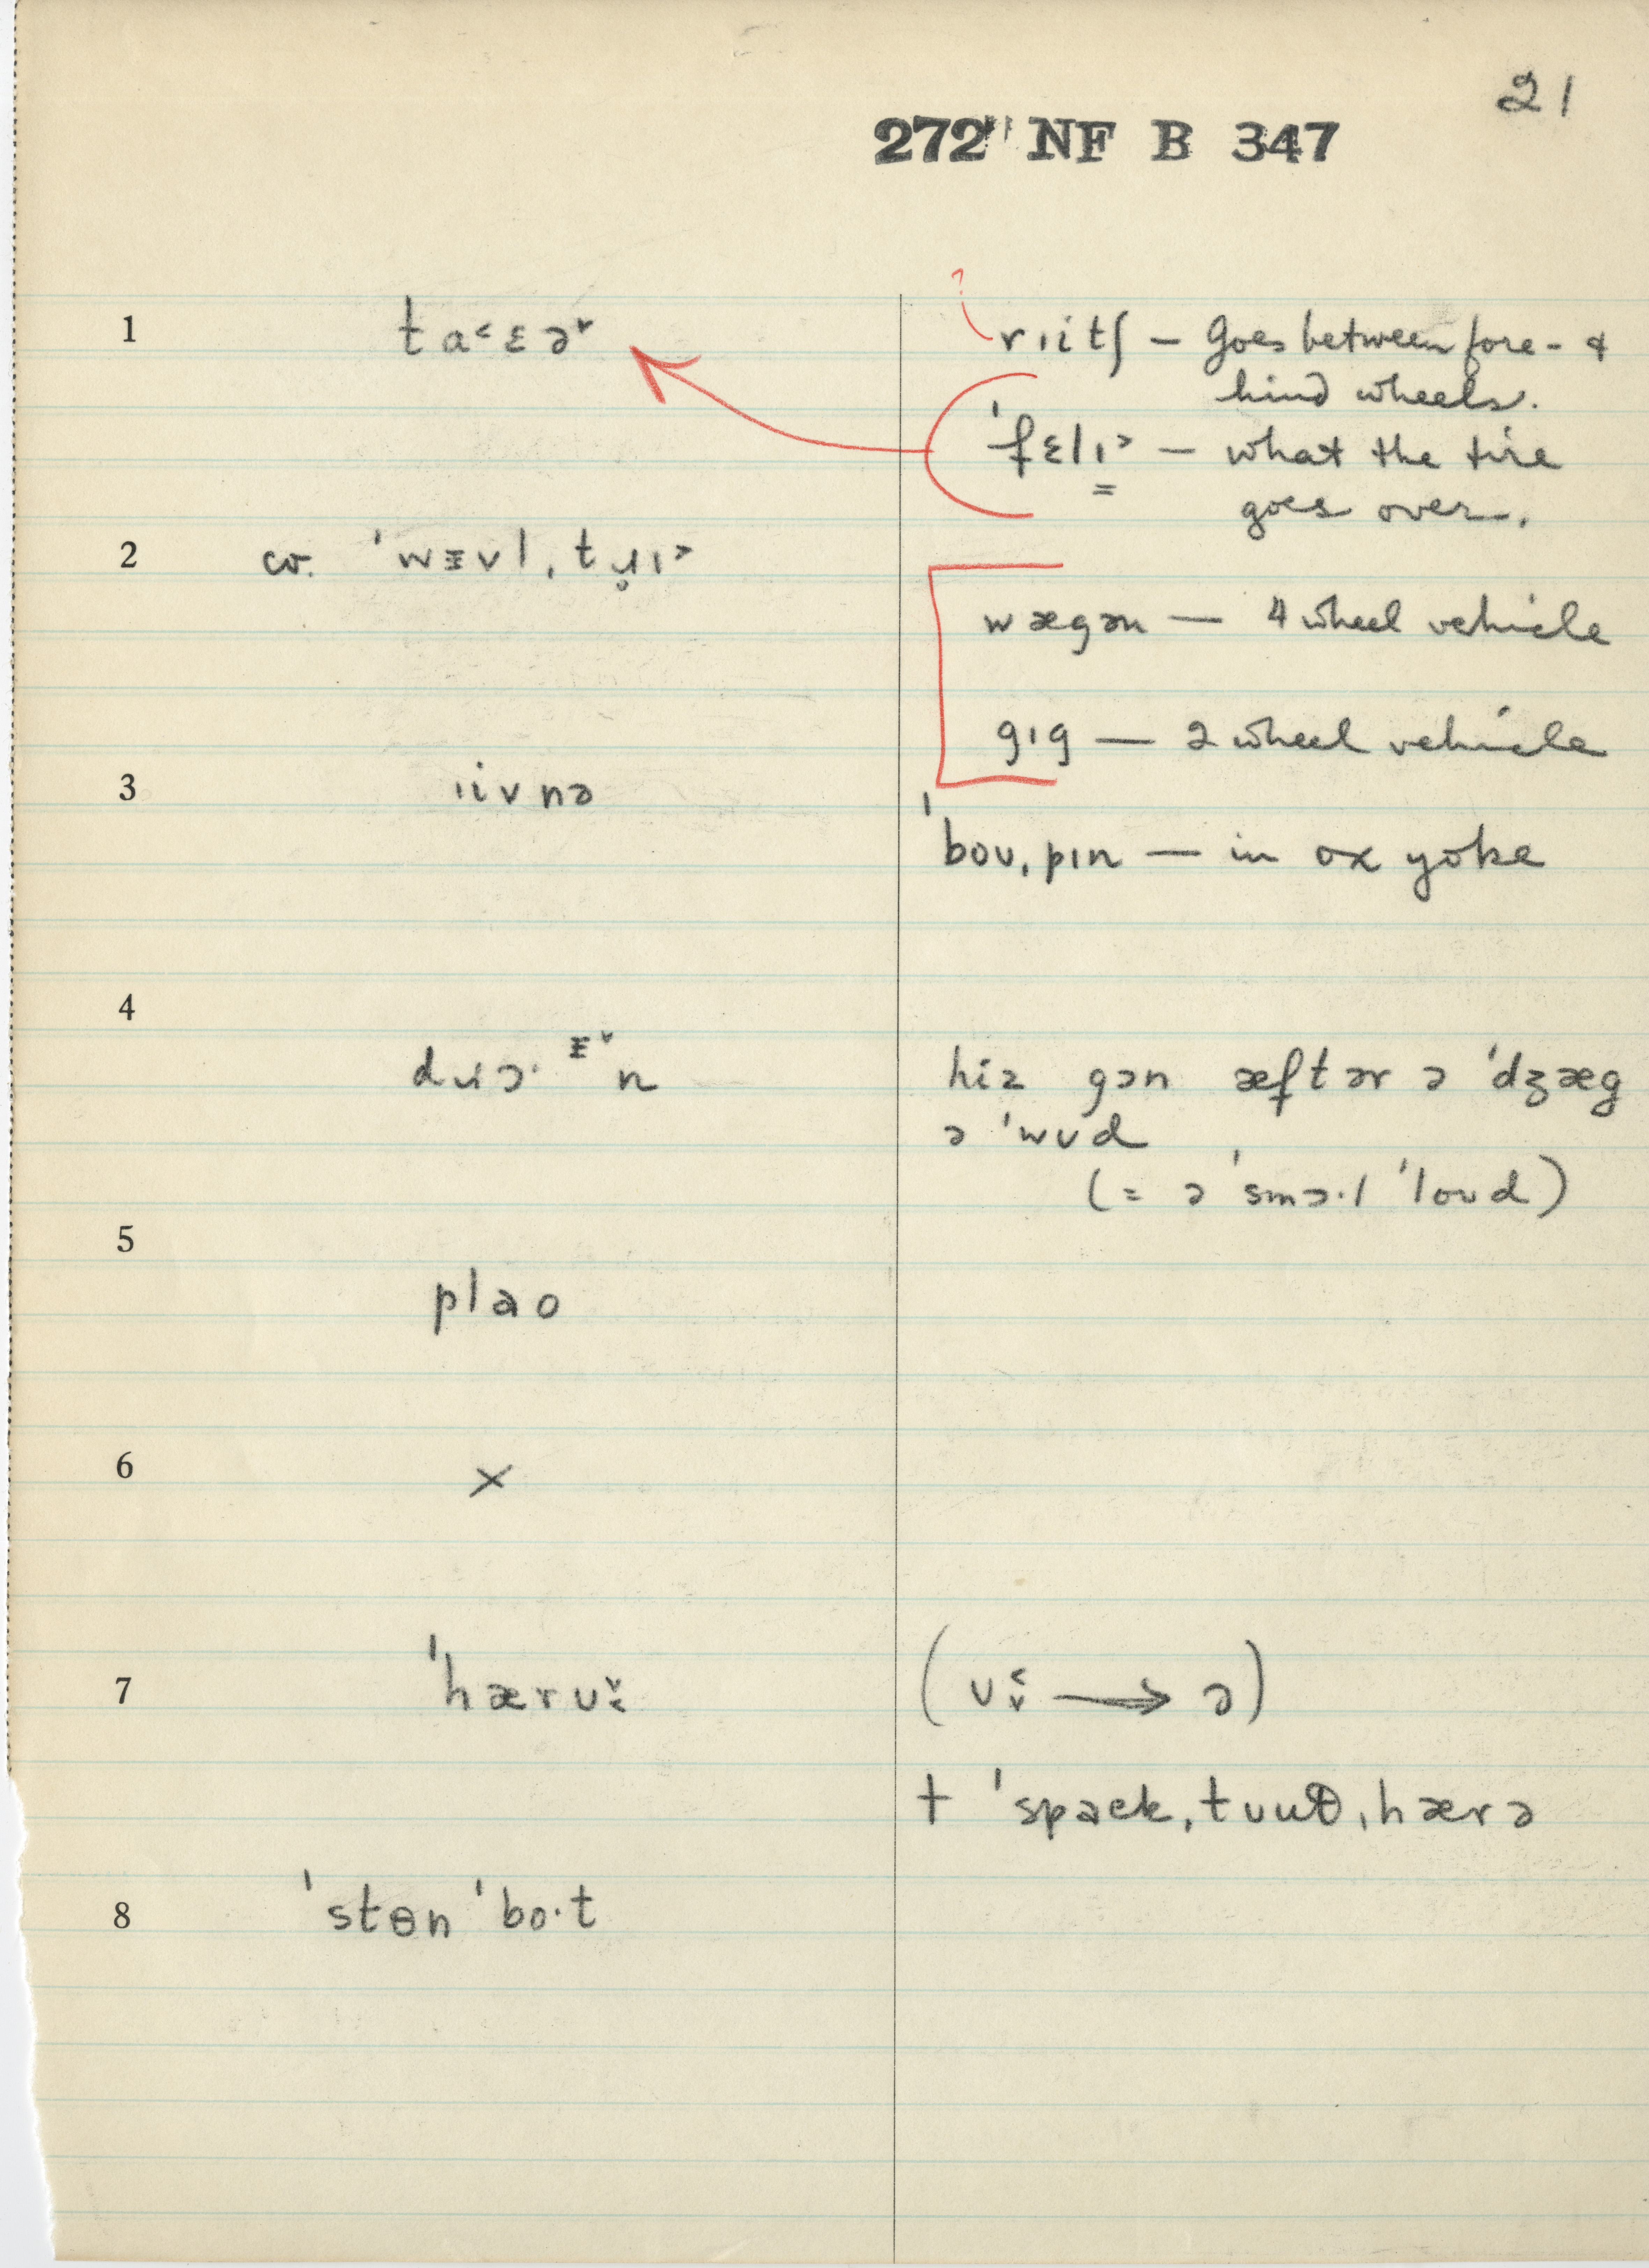 21
272 NF B 347
1 ta˂ɛə˅ ? rɪitʃ – Goes between fore- &
hind wheels.
ˈfɛlɪ˃ – what the tire
goes over.
2 cv. ˈwᴲvl, tɹ̥ɪ˃
wægən — 4 wheel vehicle
gɪg — 2 wheel vehicle
3 ɪivnə
ˈboʊˌpɪn — in ox yoke
4 dɹɔ· n hiz gɔn æftər ə ˈdʒæg
ə ˈwʊd
(= ə ˈsmɔ·l ˈloʊd)
5 plao
6 ×
7 ˈhærʊ˅˂ (ʊ˂˅ → ə)
+ ˈspaek,tʊuθ,hærə
8 ˈstɵn ˈbo·t